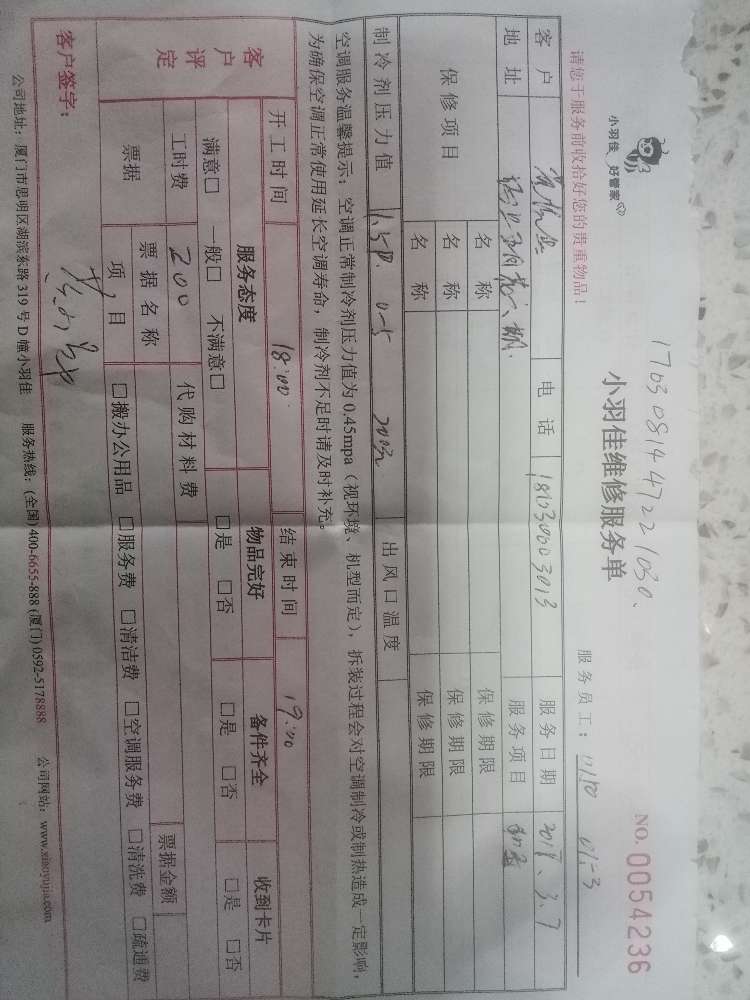 小羽佳 好管家
1703081447221030、
NO. 0054236
小羽佳维修服务单
请您于服务前收拾好您的贵重物品!
服务员工:
客户 电话 18030003013 服务日期 2018、3、7
地址 服务项目
保修项目 名称 保修期限
名称 保修期限
名称 保修期限
制冷剂压力值 1.5P. 0-5 出风口温度
空调服务温馨提示:空调正常制冷剂压力值为0.45mpa(视环境、机型而定),拆装过程会对空调制冷或制热造成一定影响,
为确保空调正常使用延长空调寿命,制冷剂不足时请及时补充。
开工时间 18:00 结束时间 19:00
客户评定 服务态度 物品完好 备件齐全 收到卡片
满意□ 一般□ 不满意□ □是 □否 □是 □否 □是 □否
工时费 200 代购材料费
票据 票据名称 票据金额
项目 □搬办公用品 □服务费 □清洁费 □空调服务费 □清洗费 □疏通费
客户签字:
公司地址:厦门市思明区湖滨东路319号D幢小羽佳 服务热线:(全国)400-6655-888 (厦门) 0592-5178888 公司网站:www.xiaoyujia.com